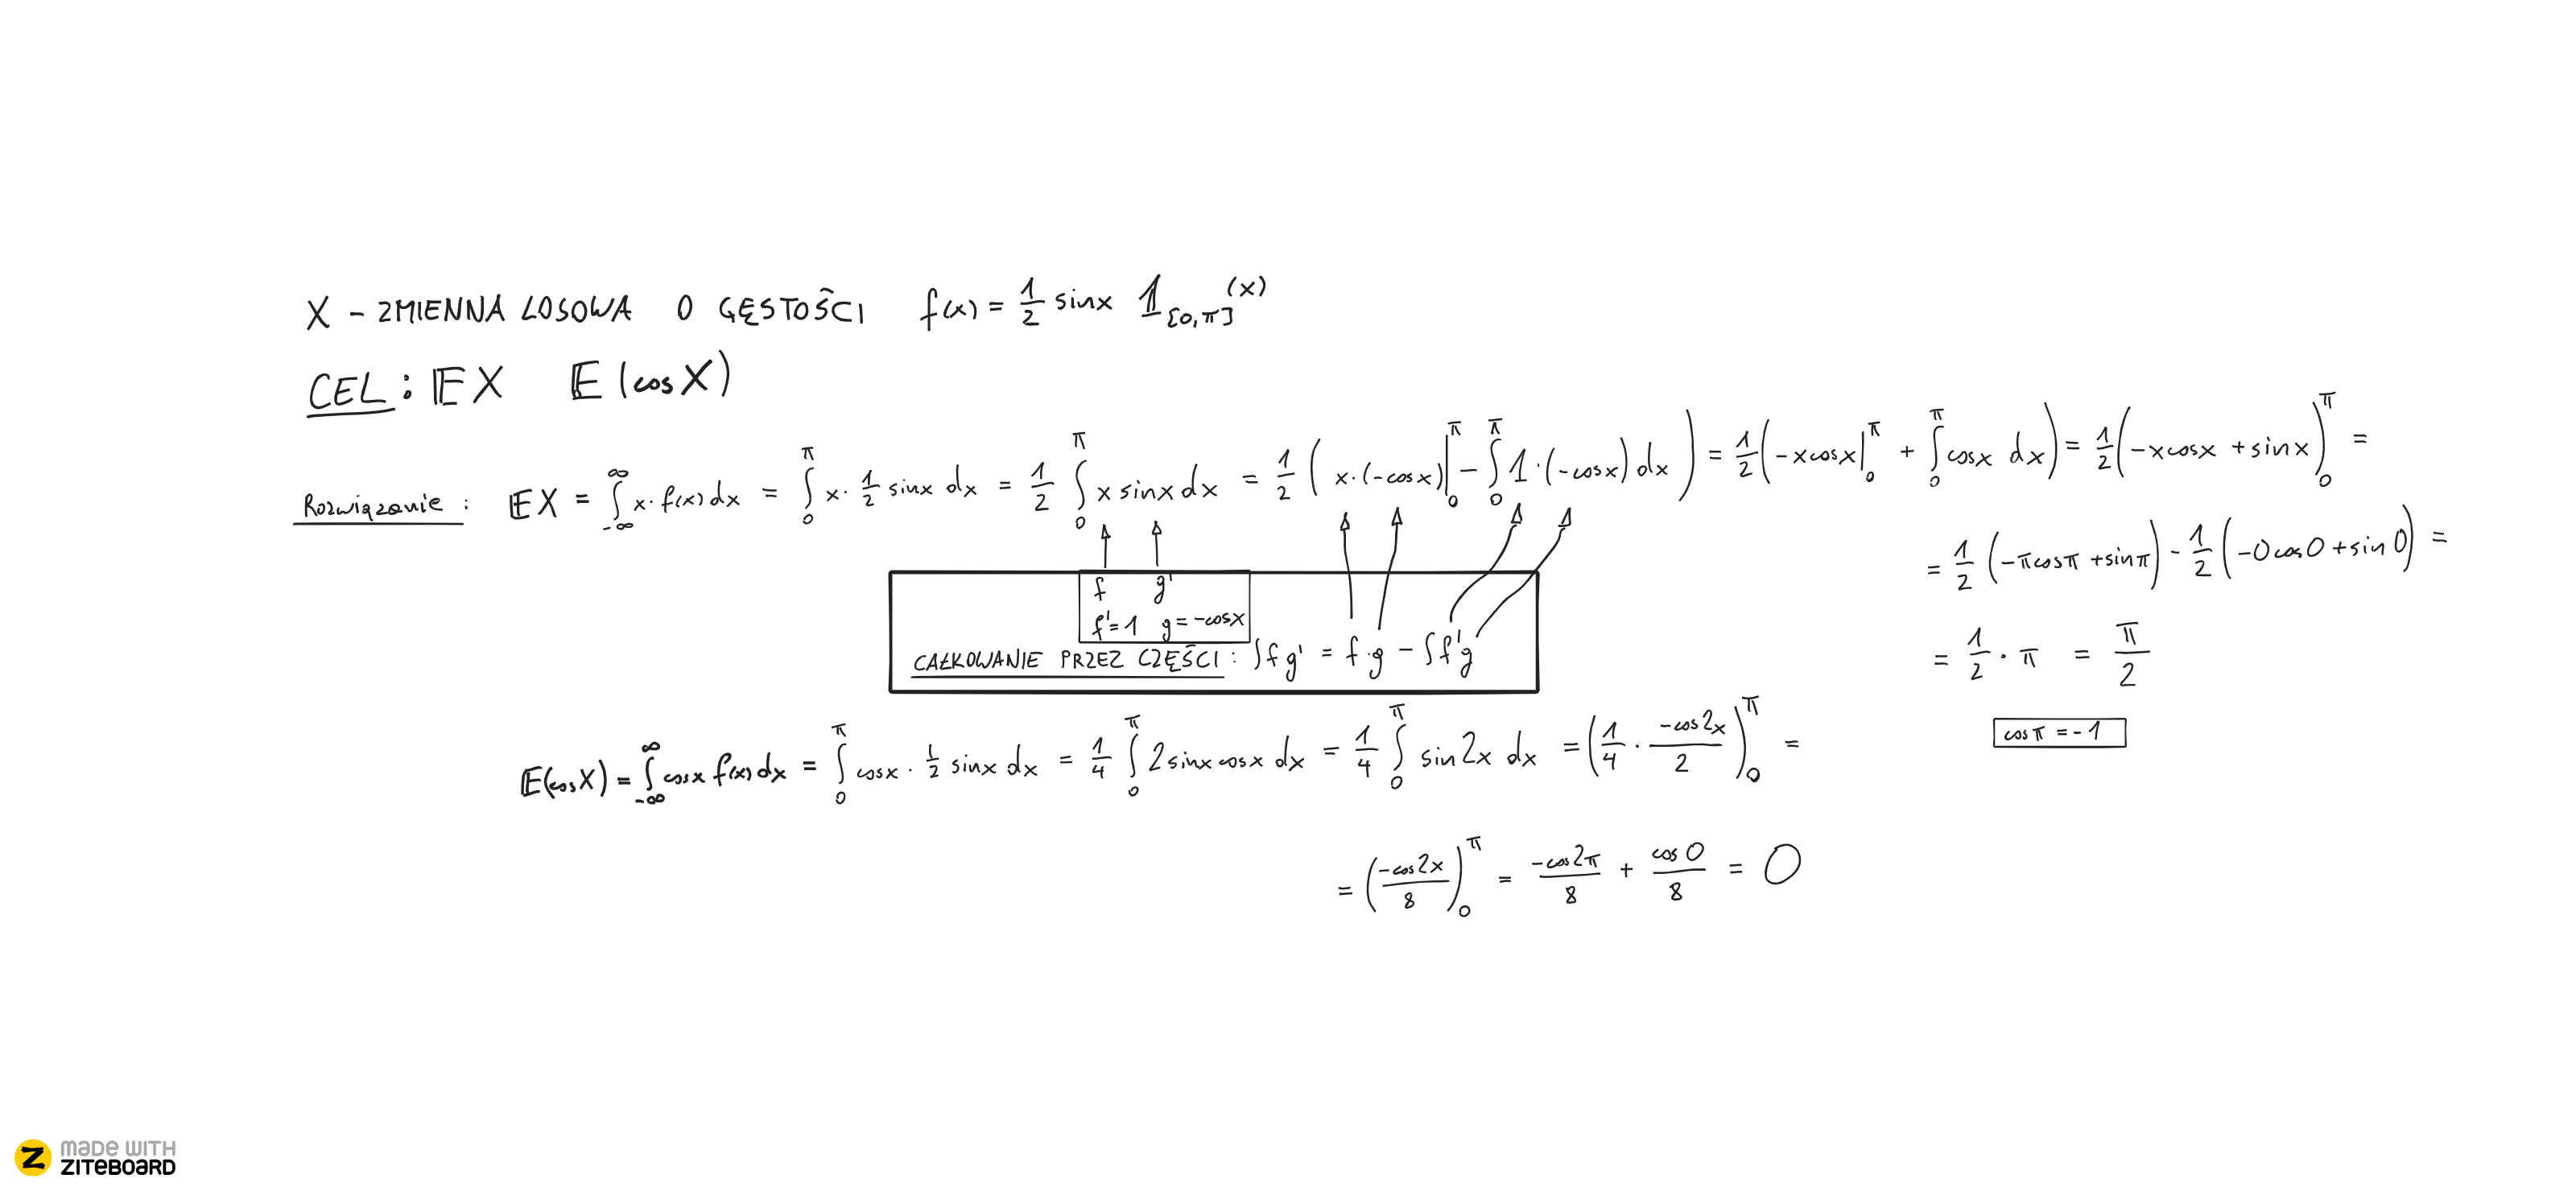 X - ZMIENNA LOSOWA O GĘSTOŚCI f(x) = 1/2 sinx 𝟙_[0,π](x)
CEL: 𝔼X 𝔼(cosX)
Rozwiązanie: 𝔼X = ∫_{-∞}^{∞} x·f(x)dx = ∫_0^π x·1/2 sinx dx = 1/2 ∫_0^π x sinx dx = 1/2 (x·(-cosx)|_0^π - ∫_0^π 1·(-cosx)dx) = 1/2(-xcosx|_0^π + ∫_0^π cosx dx) = 1/2(-xcosx + sinx)_0^π =
= 1/2 (-πcosπ + sinπ) - 1/2 (-0cos0 + sin0) =
= 1/2 · π = π/2
cosπ = -1
f g'
f'=1 g=-cosx
CAŁKOWANIE PRZEZ CZĘŚCI: ∫fg' = f·g - ∫f'g
𝔼(cosX) = ∫_{-∞}^{∞} cosx f(x)dx = ∫_0^π cosx · 1/2 sinx dx = 1/4 ∫_0^π 2sinxcosx dx = 1/4 ∫_0^π sin2x dx = (1/4 · -cos2x/2)_0^π =
= (-cos2x/8)_0^π = -cos2π/8 + cos0/8 = 0
MADE WITH
ZITEBOARD